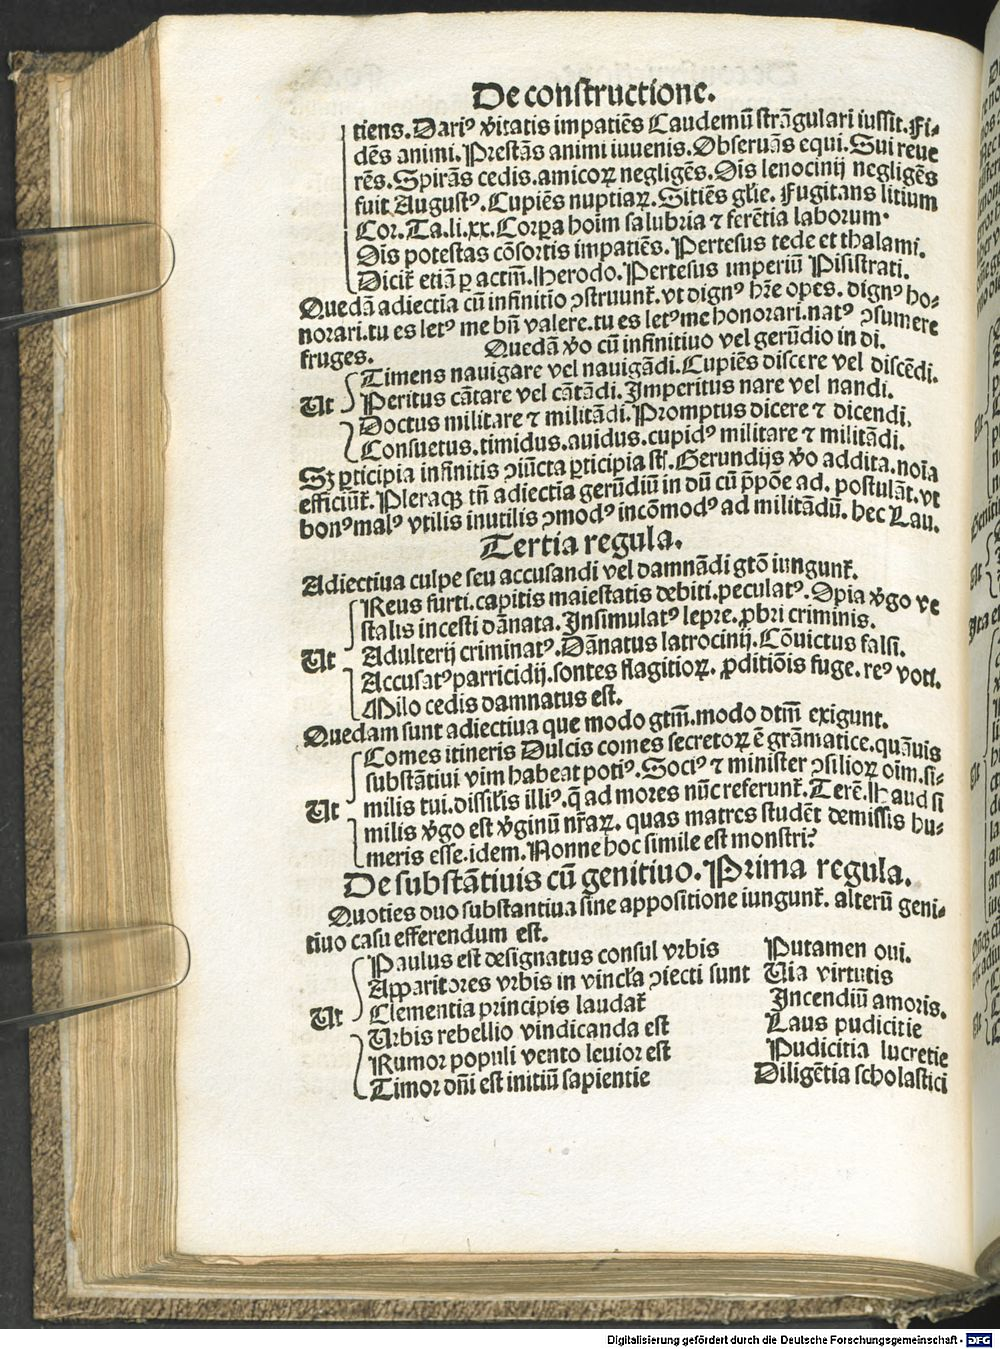 De constructione.
tiens. Dariꝰ v̾itatis impatiẽs Caudemũ strãgulari iussit. Fi-
dẽs animi. Prestãs animi iuuenis. Obseruãs equi. Sui reue
rẽs. Spirãs cedis. amicoꝝ negligẽs. Dis lenocinij negligẽs
fuit Augustꝰ. Cupiẽs nuptiaꝝ. Sitiẽs gl̃ie. Fugitans litium
Cor. Ta. li. xx. Corꝑa hoim salubria ⁊ ferẽtia laborum.
Dis potestas cõsortis impatiẽs. Pertesus tede et thalami.
Dicit᷑ etiã ꝑ actm̃. Herodo. Pertesus imperiũ Pisistrati.
Quedã adiectia cũ infinitio ꝯstruunt᷑. vt dignꝰ hr̃e opes. dignꝰ ho-
norari. tu es letꝰ me bñ valere. tu es letꝰ me honorari. natꝰ ꝯsumere
fruges. Quedã v̾o cũ infinitiuo vel gerũdio in di.
Ut Timens nauigare vel nauigãdi. Cupiẽs discere vel discẽdi.
Peritus cãtare vel cãtãdi. Imperitus nare vel nandi.
Doctus militare ⁊ militãdi. Promptus dicere ⁊ dicendi,
Consuetus. timidus. auidus. cupidꝰ militare ⁊ militãdi.
Sꝫ ꝑticipia infinitis ꝯiũcta ꝑticipia st̃. Gerundijs v̾o addita. noĩa
efficiũt᷑. Pleraqꝫ tñ adiectia gerũdiũ in dũ cũ p̃põe ad. postulãt. vt
bonꝰ malꝰ vtilis inutilis ꝯmodꝰ incõmodꝰ ad militãdũ. hec Lau.
Tertia regula.
Adiectiua culpe seu accusandi vel damnãdi gtõ iungunt᷑.
Reus furti. capitis maiestatis debiti. peculatꝰ. Opia v̾go ve
stalis incesti dãnata. Insimulatꝰ lepre. ꝓbri criminis.
Ut Adulterij criminatꝰ. Dãnatus latrocinij. Cõuictus falsi.
Accusatꝰ parricidij. sontes flagitioꝝ. ꝓditiõis fuge. reꝰ voti.
Milo cedis damnatus est.
Quedam sunt adiectiua que modo gtm̃. modo dtm̃ exigunt.
Comes itineris Dulcis comes secretoꝝ ẽ grãmatice. quãuis
substãtiui vim habeat potiꝰ. Sociꝰ ⁊ minister ꝯsilioꝝ oĩm. si-
Ut milis tui. dissil̃is illiꝰ. q̃ ad mores nũc referunt᷑. Terẽ. Haud si
milis v̾go est v̾ginũ nr̃aꝝ. quas matres studẽt demissis hu-
meris esse. idem. Nonne hoc simile est monstri?
De substãtiuis cũ genitiuo. Prima regula.
Quoties duo substantiua sine appositione iungunt᷑. alterũ geni-
tiuo casu efferendum est.
Paulus est designatus consul vrbis Putamen oui.
Apparitores vrbis in vincl̃a ꝯiecti sunt Uia virtutis
Ut Clementia principis laudat᷑ Incendiũ amoris.
Urbis rebellio vindicanda est Laus pudicitie
Rumor populi vento leuior est Pudicitia lucretie
Timor dñi est initiũ sapientie Diligẽtia scholastici
Digitalisierung gefördert durch die Deutsche Forschungsgemeinschaft - DFG